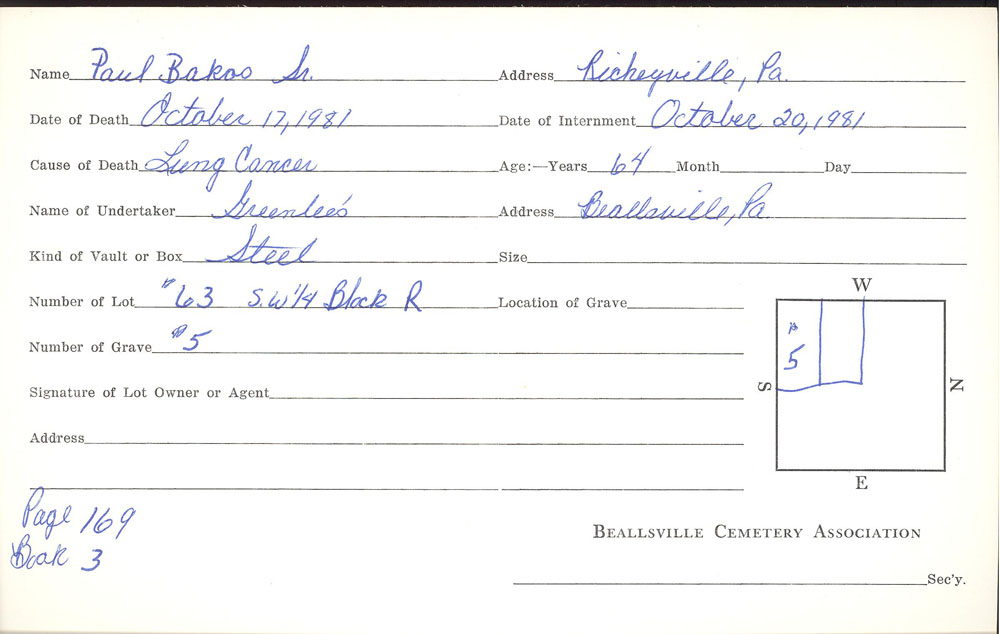 Name Paul Bakos Sr. Address Richeyville, Pa.
Date of Death October 17, 1981 Date of Internment October 20, 1981
Cause of Death Lung Cancer Age:—Years 64 Month Day
Name of Undertaker Greenlee's Address Beallsville, Pa
Kind of Vault or Box Steel Size
Number of Lot #63 S.W 1/4 Block R Location of Grave
W
Number of Grave #5
# 5
S N
Signature of Lot Owner or Agent
Address
E
Page 169
Book 3
BEALLSVILLE CEMETERY ASSOCIATION
Sec'y.